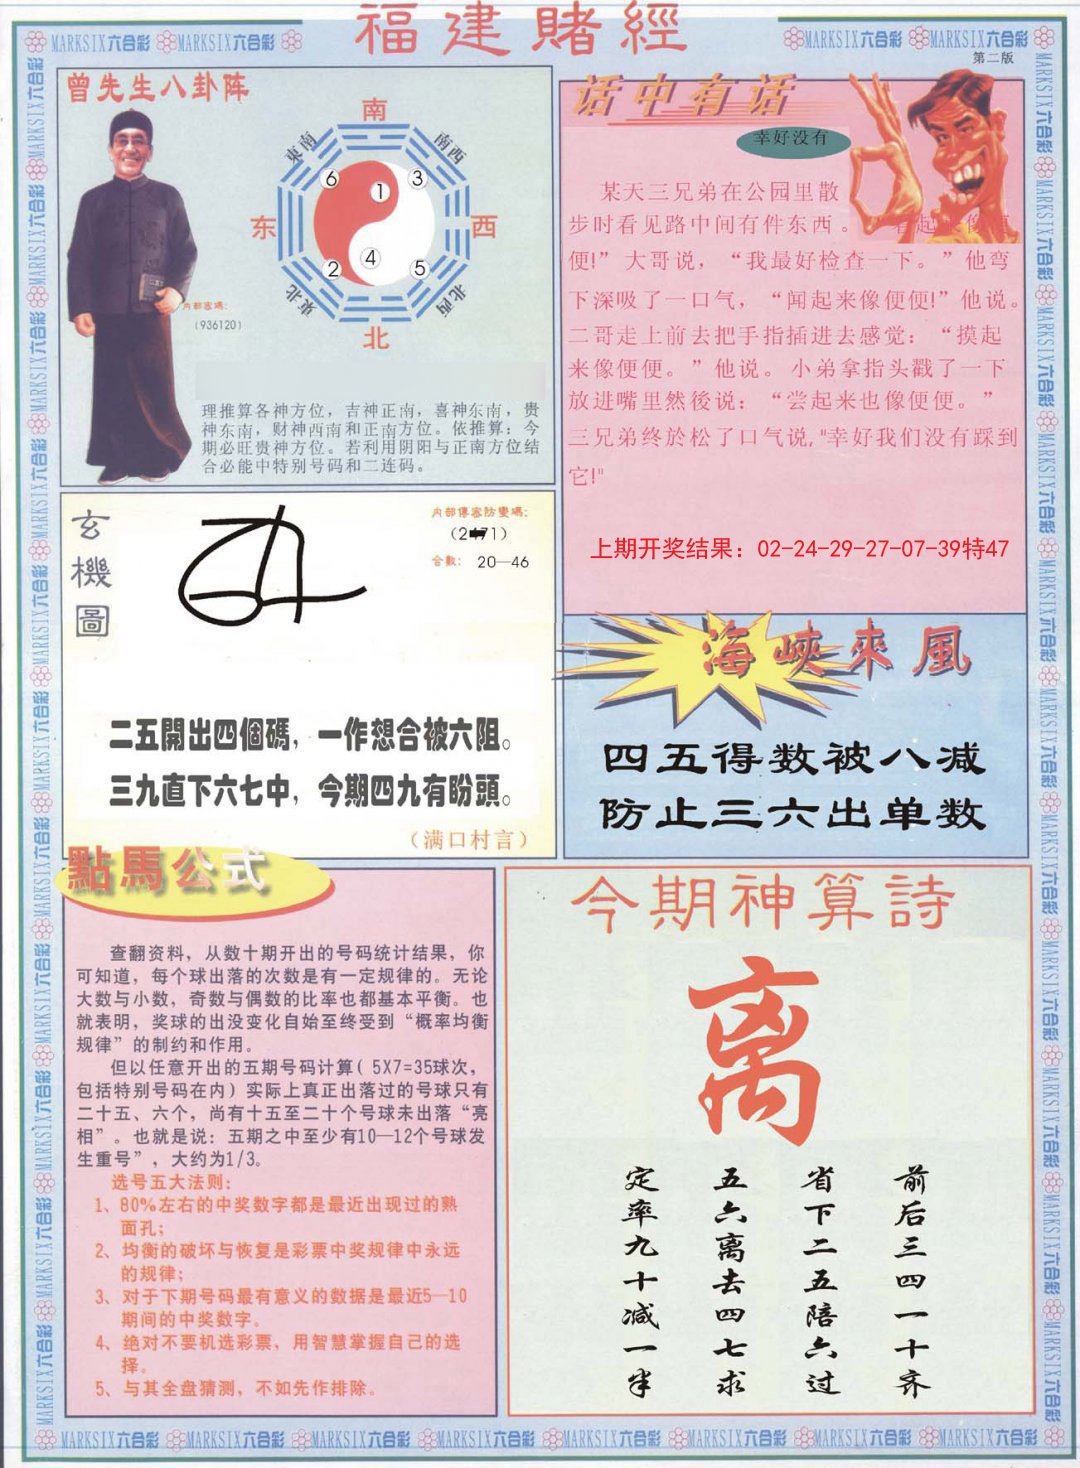 福建賭經
MARKSIX六合彩 MARKSIX六合彩
MARKSIX六合彩 MARKSIX六合彩
第二版
曾先生八卦阵
南
東南
南西
6
1
3
东
西
2
4
5
東北
北西
北
内部密碼:
(936120)
理推算各神方位，吉神正南，喜神东南，贵
神东南，财神西南和正南方位。依推算：今
期必旺贵神方位。若利用阴阳与正南方位结
合必能中特别号码和二连码。
话中有话
幸好没有
某天三兄弟在公园里散
步时看见路中间有件东西。“看起来像便
便!”大哥说，“我最好检查一下。”他弯
下深吸了一口气，“闻起来像便便!”他说。
二哥走上前去把手指插进去感觉：“摸起
来像便便。”他说。小弟拿指头戳了一下
放进嘴里然後说：“尝起来也像便便。”
三兄弟终於松了口气说,"幸好我们没有踩到
它!"
上期开奖结果：02-24-29-27-07-39特47
玄機圖
内部傳密防變碼:
合數: 20—46
二五開出四個碼，一作想合被六阻。
三九直下六七中，今期四九有盼頭。
(满口村言)
海峽來風
四五得数被八减
防止三六出单数
點馬公式
查翻资料，从数十期开出的号码统计结果，你
可知道，每个球出落的次数是有一定规律的。无论
大数与小数，奇数与偶数的比率也都基本平衡。也
就表明，奖球的出没变化自始至终受到“概率均衡
规律”的制约和作用。
但以任意开出的五期号码计算( 5X7=35球次，
包括特别号码在内）实际上真正出落过的号球只有
二十五、六个，尚有十五至二十个号球未出落“亮
相”。也就是说：五期之中至少有10—12个号球发
生重号”，大约为1/3。
选号五大法则：
1、80%左右的中奖数字都是最近出现过的熟
面孔；
2、均衡的破坏与恢复是彩票中奖规律中永远
的规律；
3、对于下期号码最有意义的数据是最近5—10
期间的中奖数字。
4、绝对不要机选彩票，用智慧掌握自己的选
择。
5、与其全盘猜测，不如先作排除。
今期神算詩
离
前后三四一十齐
省下二五陪六过
五六离去四七求
定率九十减一半
MARKSIX六合彩 MARKSIX六合彩 MARKSIX六合彩 MARKSIX六合彩 MARKSIX六合彩 MARKSIX六合彩 MARKSIX六合彩 MARKSIX六合彩